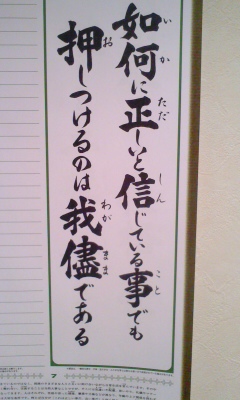 如何に正しいと信じている事でも
押しつけるのは我儘である
いか
ただ
しん
こと
お
わが
まま
7